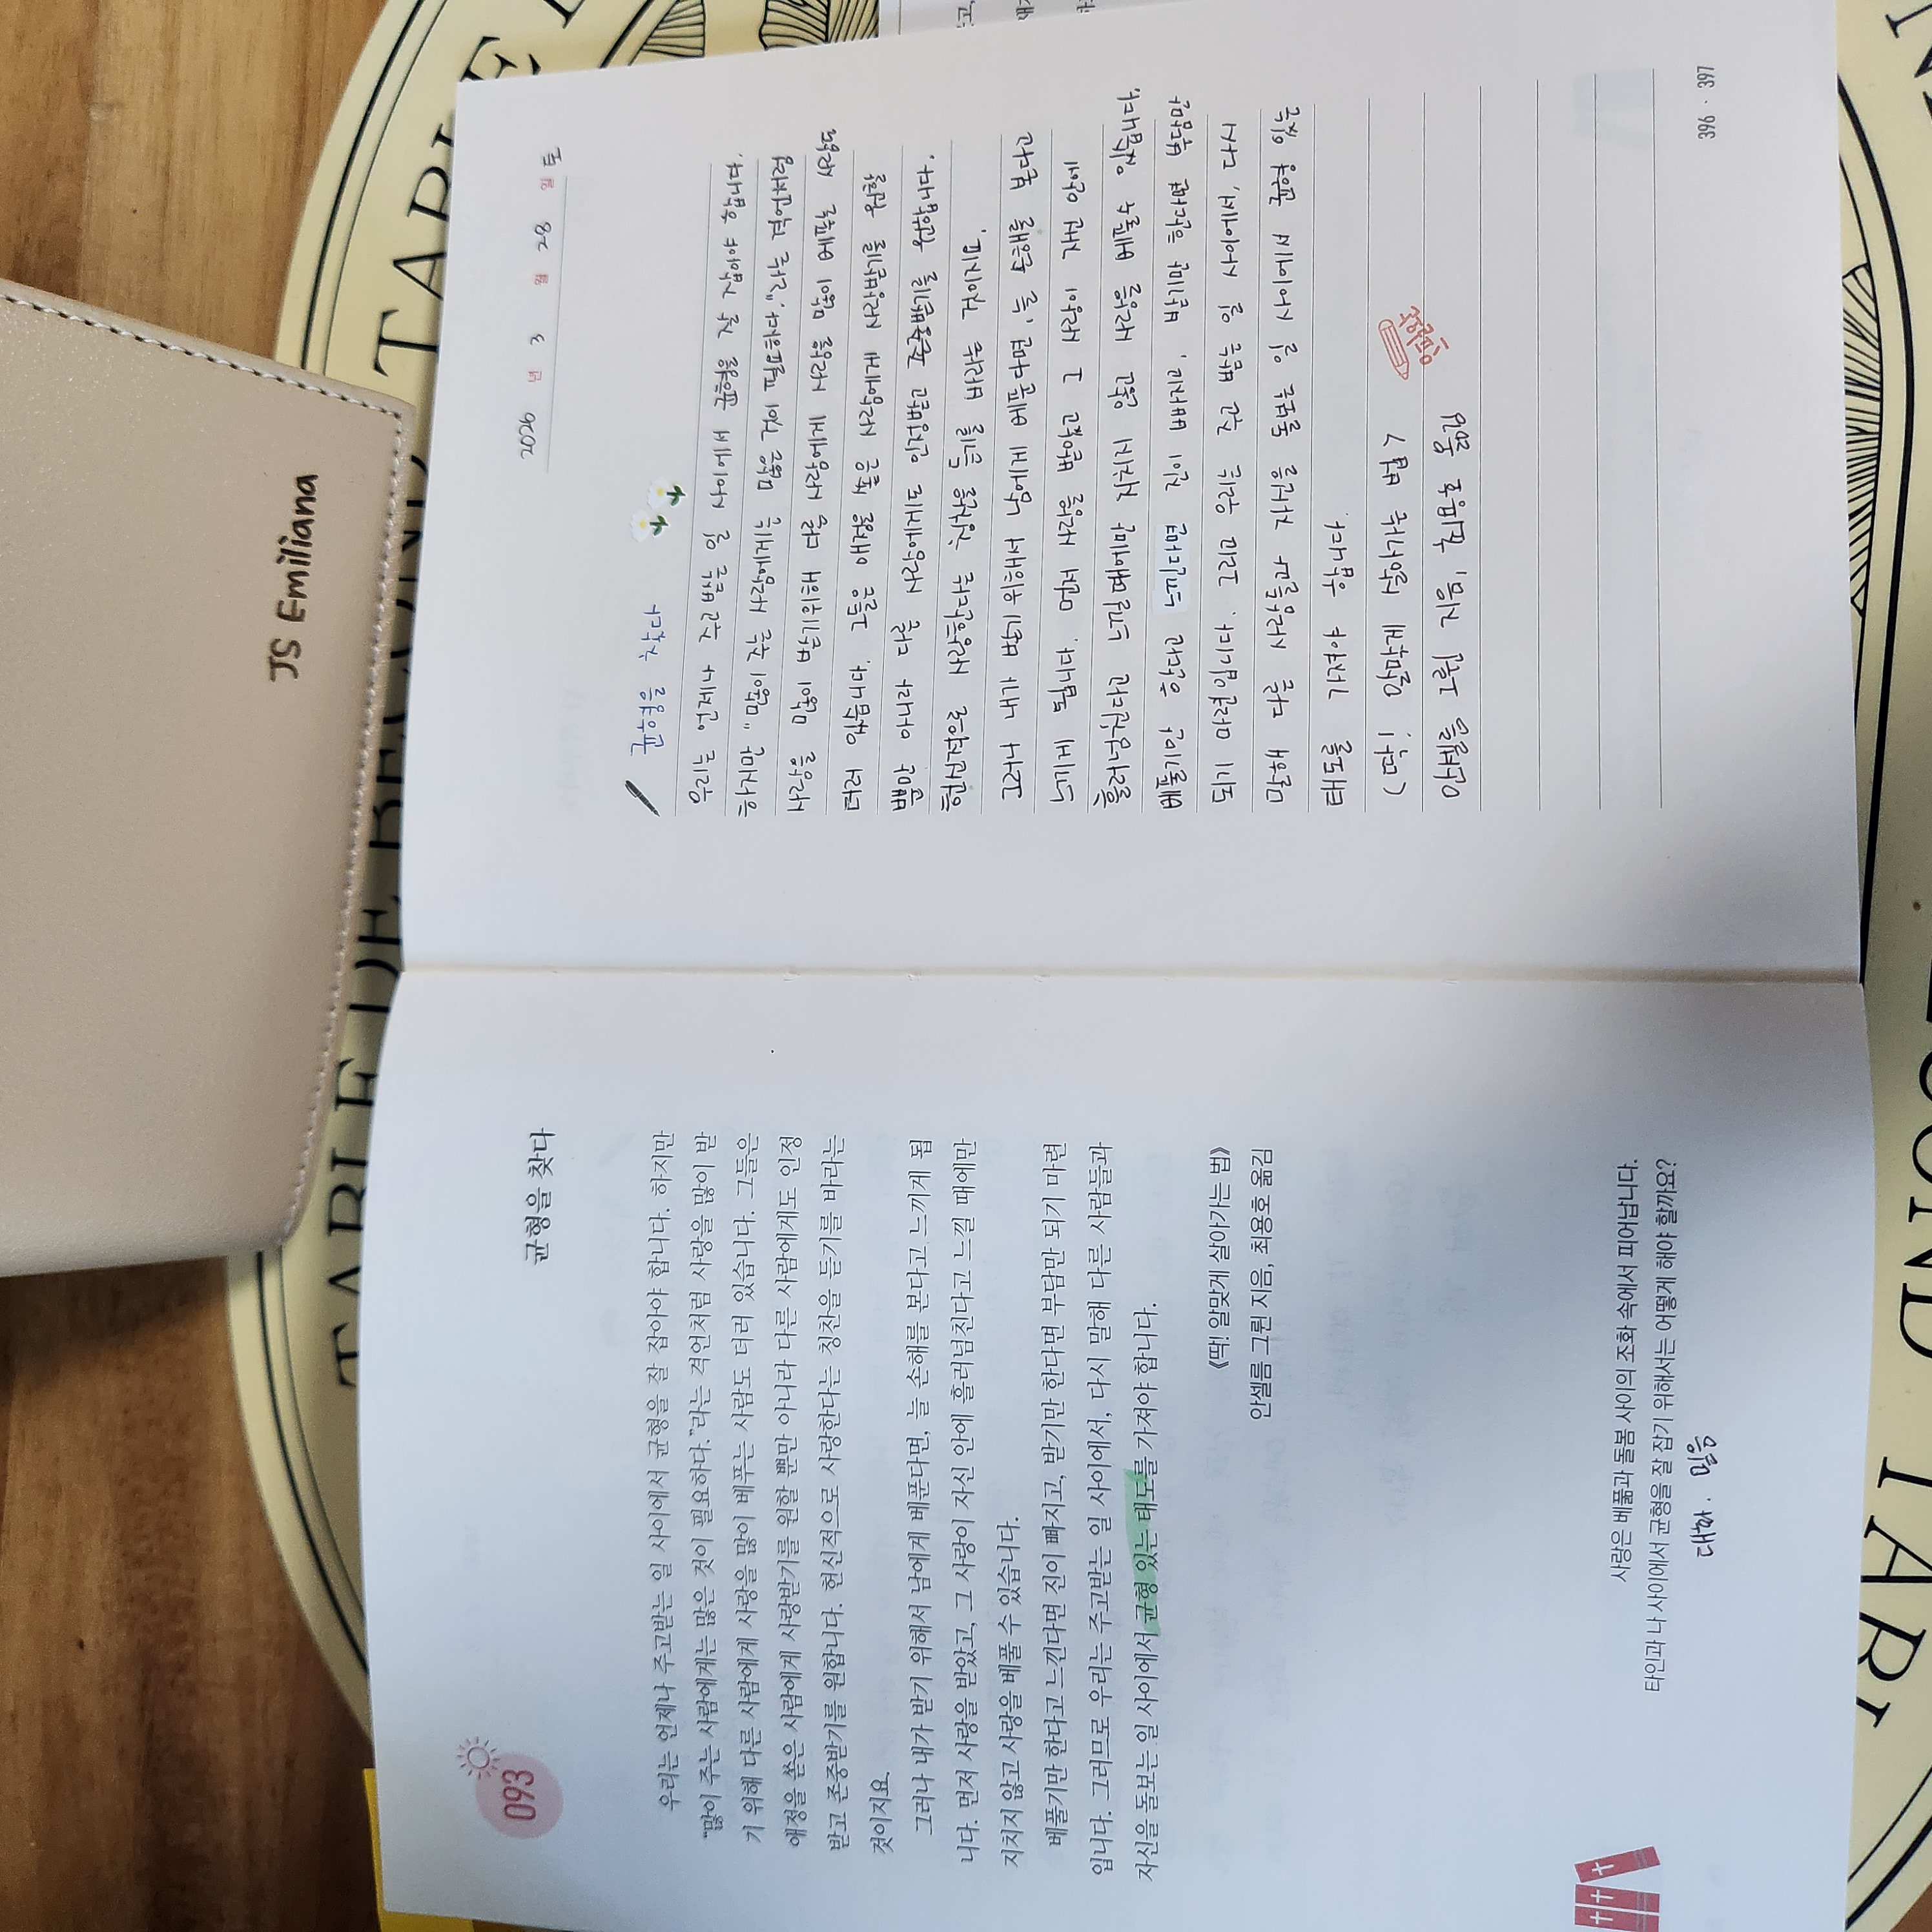 JS Emiliana
093
균형을 찾다
우리는 언제나 주고받는 일 사이에서 균형을 잘 잡아야 합니다. 하지만
"많이 주는 사람에게는 많은 것이 필요하다."라는 격언처럼 사랑을 많이 받
기 위해 다른 사람에게 사랑을 많이 베푸는 사람도 더러 있습니다. 그들은
애정을 쏟은 사람에게 사랑받기를 원할 뿐만 아니라 다른 사람에게도 인정
받고 존중받기를 원합니다. 헌신적으로 사랑한다는 칭찬을 듣기를 바라는
것이지요.
그러나 내가 받기 위해서 남에게 베푼다면, 늘 손해를 본다고 느끼게 됩
니다. 먼저 사랑을 받았고, 그 사랑이 자신 안에 흘러넘친다고 느낄 때에만
지치지 않고 사랑을 베풀 수 있습니다.
베풀기만 한다고 느낀다면 진이 빠지고, 받기만 한다면 부담만 되기 마련
입니다. 그러므로 우리는 주고받는 일 사이에서, 다시 말해 다른 사람들과
자신을 돌보는 일 사이에서 균형 있는 태도를 가져야 합니다.
《딱! 알맞게 살아가는 법》
안셀름 그륀 지음, 최용호 옮김
사랑은 베풂과 돌봄 사이의 조화 속에서 피어납니다.
타인과 나 사이에서 균형을 잘 잡기 위해서는 어떻게 해야 할까요?
대화. 믿음
2026 년 3 월 28 일 토
균형을 찾다
우리는 언제나 주고 받는 일 사이에서 균형을 잘 잡아야 합니다.
하지만 "많이 주는 사람에게는 많은 것이 필요하다." 라는 격언처럼
사랑을 많이 받기 위해 다른 사람에게 사랑을 많이 베푸는 사람도
더러 있습니다. 그들은 애정을 쏟은 사람에게 사랑받기를 원할
뿐만 아니라 다른 사람에게도 인정받고 존중받기를 원합니다.
헌신적으로 사랑한다는 칭찬을 듣기를 바라는 것이지요.
그러나 내가 받기 위해서 남에게 베푼다면, 늘 손해를 본다고
느끼게 됩니다. 먼저 사랑을 받았고 그 사랑이 자신 안에
흘러넘친다고 느낄때에만 지치지 않고 사랑을 베풀 수 있습니다.
베풀기만 한다고 느낀다면 진이 빠지고, 받기만 한다면 부담만
되기 마련입니다. 그러므로 우리는 주고 받는 일 사이에서, 다시
말해 다른 사람들과 자신을 돌보는 일 사이에서 균형 있는
태도를 가져야 합니다.
<딱! 알맞게 살아가는 법>
안셀름 그륀 지음, 최용호 옮김
396 · 397